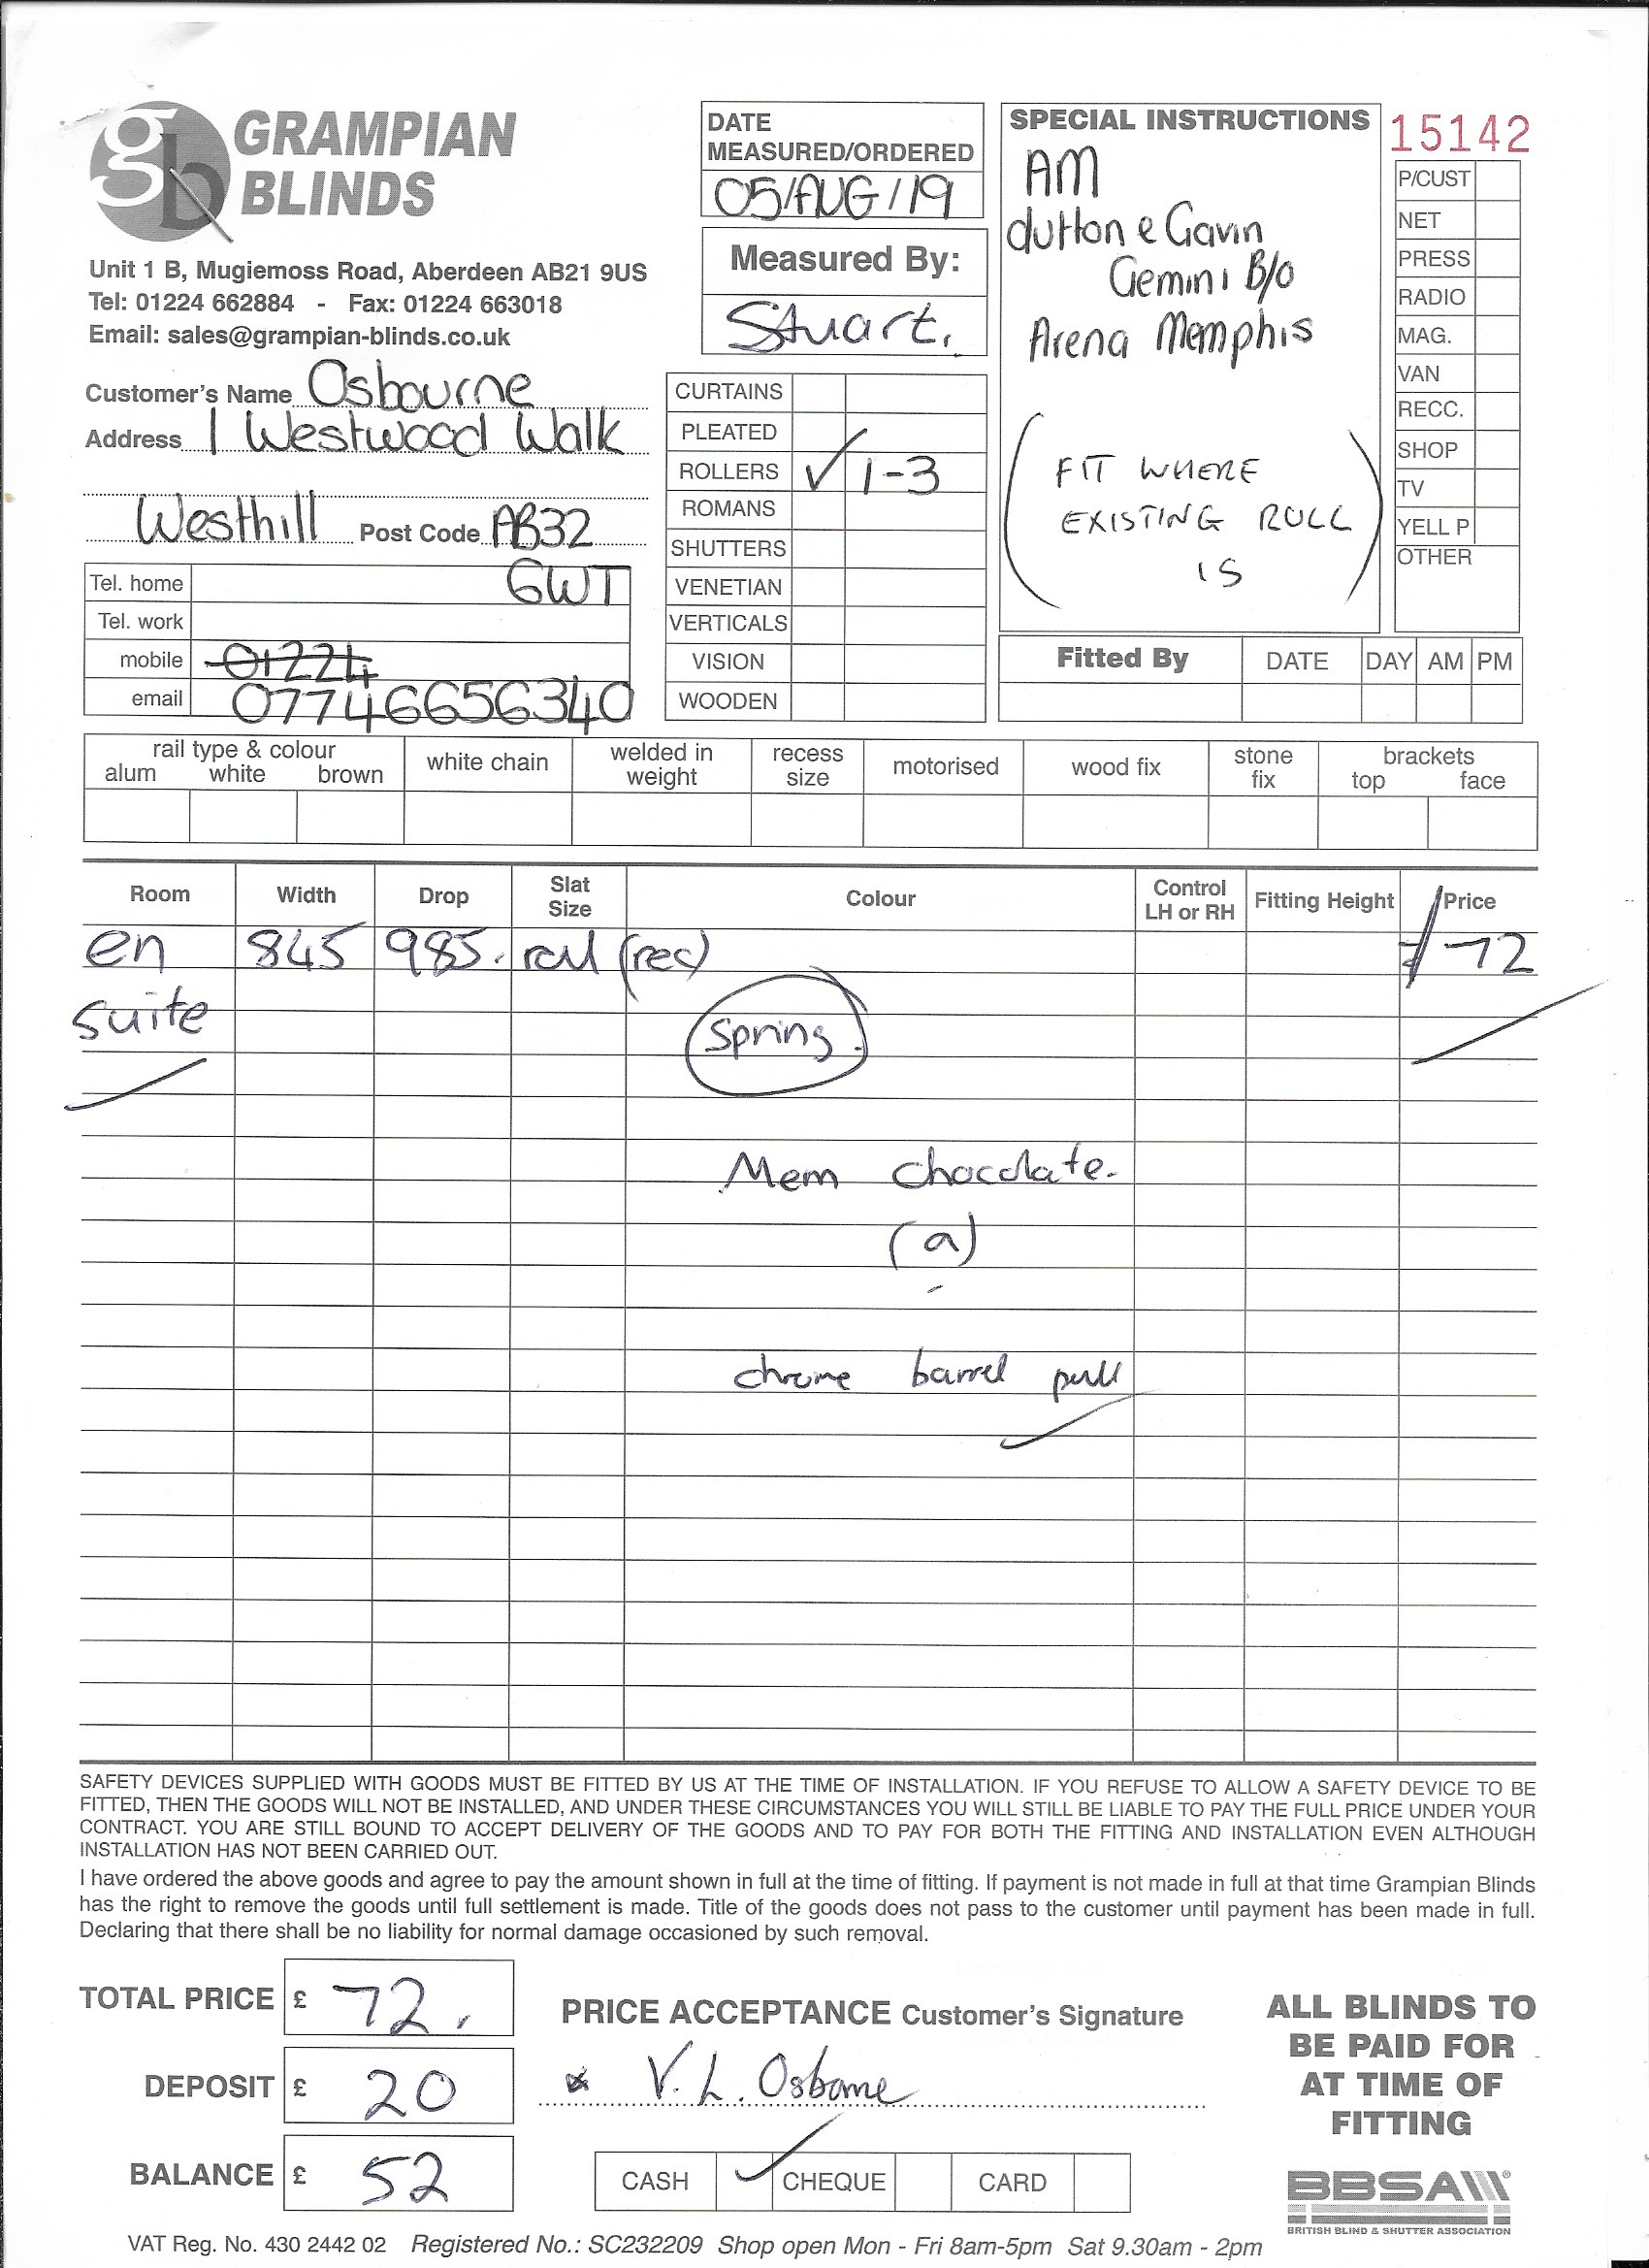 gb GRAMPIAN
BLINDS
Unit 1 B, Mugiemoss Road, Aberdeen AB21 9US
Tel: 01224 662884 - Fax: 01224 663018
Email: sales@grampian-blinds.co.uk
Customer's Name Osbourne
Address 1 Westwood Walk
Westhill Post Code AB32
6WT
Tel. home
Tel. work
mobile 01224
email 07746656340
DATE
MEASURED/ORDERED
05/AUG/19
Measured By:
Stuart.
CURTAINS
PLEATED
ROLLERS ✓ 1-3
ROMANS
SHUTTERS
VENETIAN
VERTICALS
VISION
WOODEN
SPECIAL INSTRUCTIONS
AM
dutton e Gavin
Gemini B/o
Arena Memphis
(FIT WHERE
EXISTING ROLL
IS)
15142
P/CUST
NET
PRESS
RADIO
MAG.
VAN
RECC.
SHOP
TV
YELL P
OTHER
Fitted By DATE DAY AM PM
rail type & colour
alum white brown
white chain
welded in
weight
recess
size
motorised
wood fix
stone
fix
brackets
top face
Room Width Drop Slat
Size Colour Control
LH or RH Fitting Height Price
en 845 985. roll (rec) 72
suite
Spring.
Mem chocolate.
(a)
chrome barrel pull
SAFETY DEVICES SUPPLIED WITH GOODS MUST BE FITTED BY US AT THE TIME OF INSTALLATION. IF YOU REFUSE TO ALLOW A SAFETY DEVICE TO BE
FITTED, THEN THE GOODS WILL NOT BE INSTALLED, AND UNDER THESE CIRCUMSTANCES YOU WILL STILL BE LIABLE TO PAY THE FULL PRICE UNDER YOUR
CONTRACT. YOU ARE STILL BOUND TO ACCEPT DELIVERY OF THE GOODS AND TO PAY FOR BOTH THE FITTING AND INSTALLATION EVEN ALTHOUGH
INSTALLATION HAS NOT BEEN CARRIED OUT.
I have ordered the above goods and agree to pay the amount shown in full at the time of fitting. If payment is not made in full at that time Grampian Blinds
has the right to remove the goods until full settlement is made. Title of the goods does not pass to the customer until payment has been made in full.
Declaring that there shall be no liability for normal damage occasioned by such removal.
TOTAL PRICE £ 72.
DEPOSIT £ 20
BALANCE £ 52
PRICE ACCEPTANCE Customer's Signature
V. L. Osborne
CASH ✓ CHEQUE CARD
ALL BLINDS TO
BE PAID FOR
AT TIME OF
FITTING
BBSA
BRITISH BLIND & SHUTTER ASSOCIATION
VAT Reg. No. 430 2442 02 Registered No.: SC232209 Shop open Mon - Fri 8am-5pm Sat 9.30am - 2pm